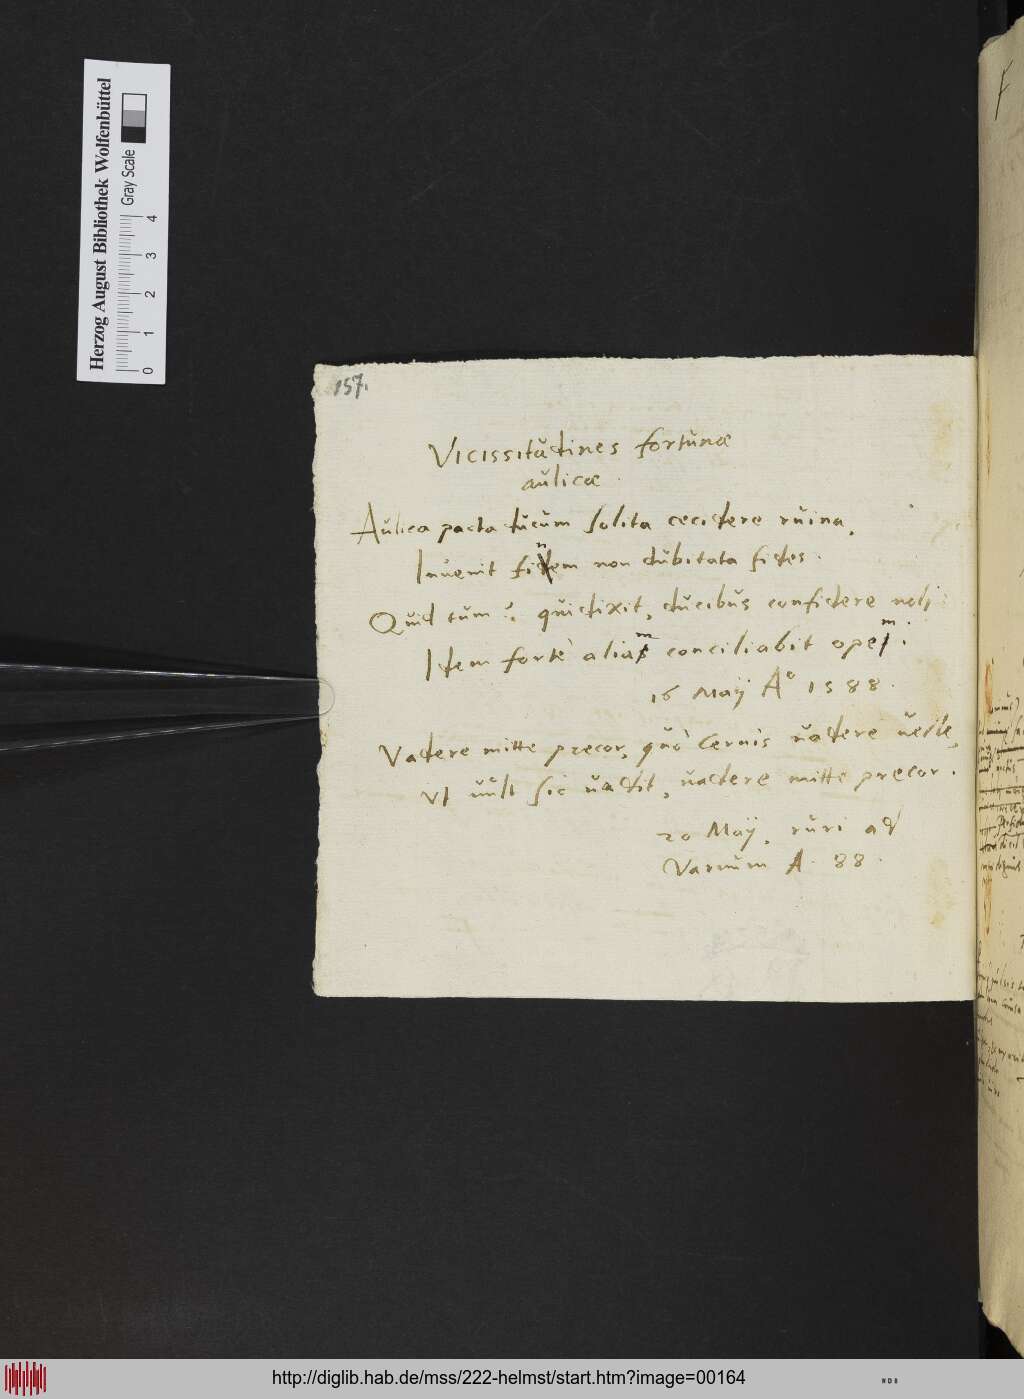 Herzog August Bibliothek Wolfenbüttel
Gray Scale
0 1 2 3 4
157.
Vicissitudines fortunæ
aulicæ.
Aulica pacta ducum solita cecidere ruina,
Invenit finem non dubitata fides.
Quid tum? qui dixit, ducibus confidere noli:
Idem forte aliam conciliabit opem.
16 Maÿ A° 1588.
Vadere mitte precor, quò cernis vadere velle,
Vt vult sic vadit, vadere mitte precor.
20 Maÿ, ruri ad
Varmum A. 88.
http://diglib.hab.de/mss/222-helmst/start.htm?image=00164